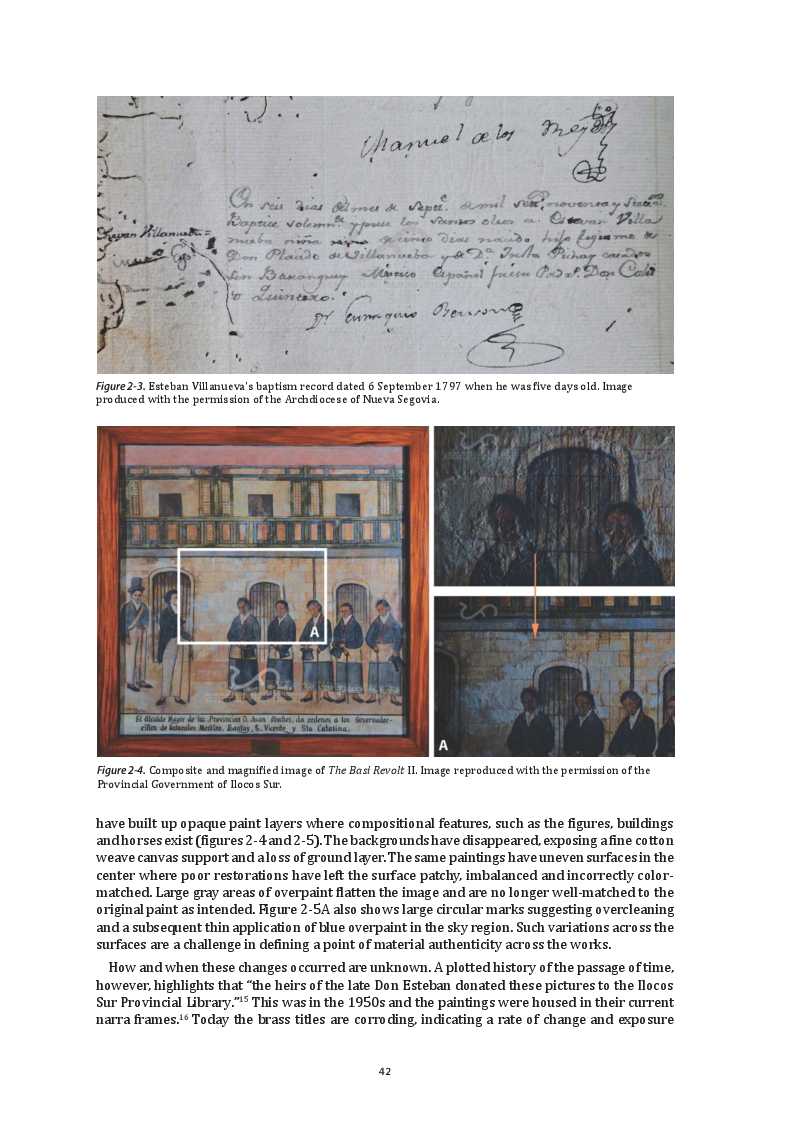 Manuel de los Reyes
On seis dias del mes de Sepre. de mil sete. noventa y siete
Baptice solemnte. y puse los santos oleos a Estevan Villa
nueba de cinco dias nacido hijo legitimo de
Estevan Villanueba
Don Placido de Villanueba y de Da.
Español Don
o Quintero.
Figure 2-3. Esteban Villanueva's baptism record dated 6 September 1797 when he was five days old. Image
produced with the permission of the Archdiocese of Nueva Segovia.
A
El Alcalde Mayor de las Provincias D. Juan da ordenes a los Gobernador-
cillos de Naturales Mestizo, Bantay, S. Vicente y Sta Catalina.
A
Figure 2-4. Composite and magnified image of The Basi Revolt II. Image reproduced with the permission of the
Provincial Government of Ilocos Sur.
have built up opaque paint layers where compositional features, such as the figures, buildings
and horses exist (figures 2-4 and 2-5). The backgrounds have disappeared, exposing a fine cotton
weave canvas support and a loss of ground layer. The same paintings have uneven surfaces in the
center where poor restorations have left the surface patchy, imbalanced and incorrectly color-
matched. Large gray areas of overpaint flatten the image and are no longer well-matched to the
original paint as intended. Figure 2-5A also shows large circular marks suggesting overcleaning
and a subsequent thin application of blue overpaint in the sky region. Such variations across the
surfaces are a challenge in defining a point of material authenticity across the works.
How and when these changes occurred are unknown. A plotted history of the passage of time,
however, highlights that “the heirs of the late Don Esteban donated these pictures to the Ilocos
Sur Provincial Library.”15 This was in the 1950s and the paintings were housed in their current
narra frames.16 Today the brass titles are corroding, indicating a rate of change and exposure
42